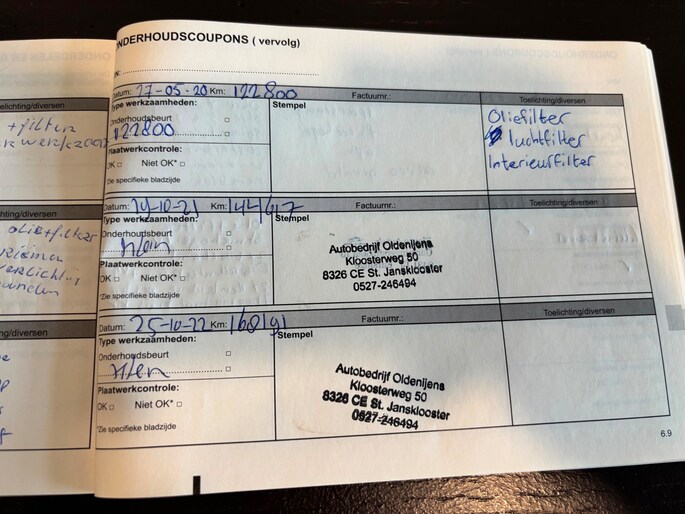 ONDERHOUDSCOUPONS ( vervolg)
N:
Datum: 27-05-20 Km: 122800 Factuurnr.: Toelichting/diversen
Type werkzaamheden: Stempel
Onderhoudsbeurt
122800
Plaatwerkcontrole:
OK Niet OK*
*Zie specifieke bladzijde
Oliefilter
luchtfilter
Interieurfilter
Datum: 19-10-21 Km: Factuurnr.: Toelichting/diversen
Type werkzaamheden: Stempel
Onderhoudsbeurt
Klein
Plaatwerkcontrole:
OK Niet OK*
*Zie specifieke bladzijde
Autobedrijf Oldenijens
Kloosterweg 50
8326 CE St. Jansklooster
0527-246494
Datum: 25-10-22 Km: 168191 Factuurnr.: Toelichting/diversen
Type werkzaamheden: Stempel
Onderhoudsbeurt
Plaatwerkcontrole:
OK Niet OK*
*Zie specifieke bladzijde
Autobedrijf Oldenijens
Kloosterweg 50
8326 CE St. Jansklooster
0527-246494
6.9
elichting/diversen
+filter
ting/diversen
olie+filter
ng/diversen